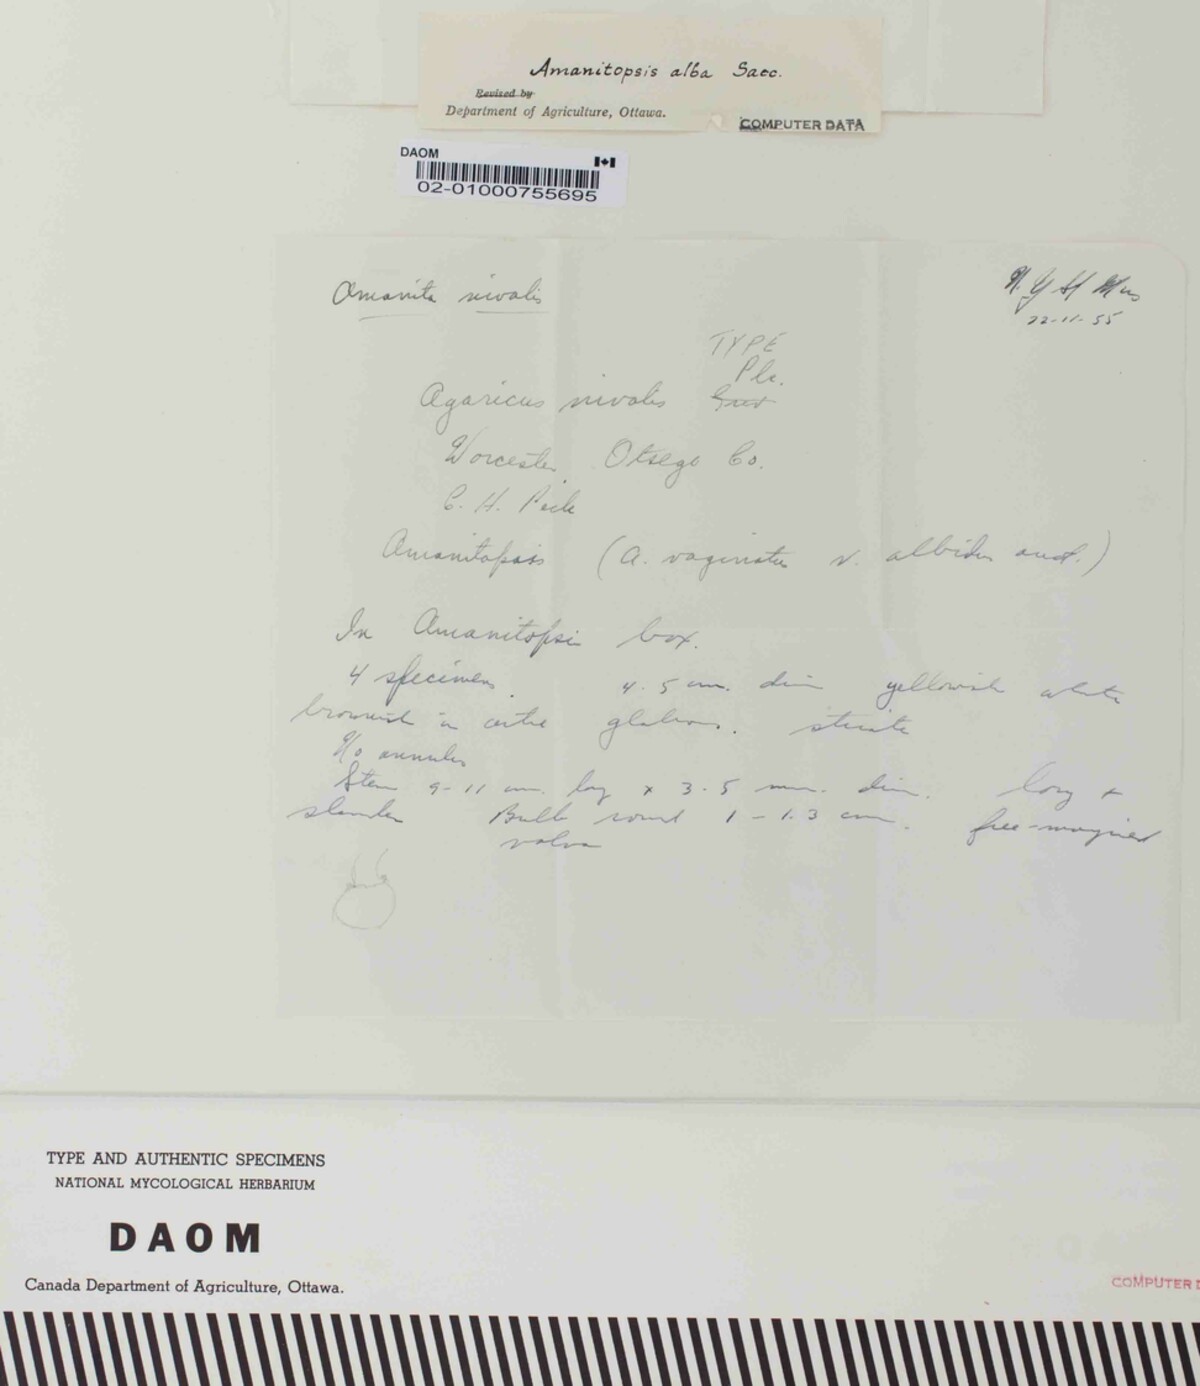 Amanitopsis alba Sacc.
Revised by
Department of Agriculture, Ottawa.
COMPUTER DATA
DAOM
02-01000755695
Amanita nivalis
N. Y St Mus
22-11-55
TYPE
Pk.
Agaricus nivalis Grev
Worcester Otsego Co.
C. H. Peck
Amanitopsis (A. vaginatus v. albidus auct.)
In Amanitopsis box.
4 specimens. 4.5 cm. diam yellowish white
brownish in centre glabrous. striate
No annulus
Stem 9-11 cm. long x 3-5 mm. diam. long +
slender Bulb round 1-1.3 cm. free-margined
volva
TYPE AND AUTHENTIC SPECIMENS
NATIONAL MYCOLOGICAL HERBARIUM
DAOM
Canada Department of Agriculture, Ottawa.
COMPUTER D